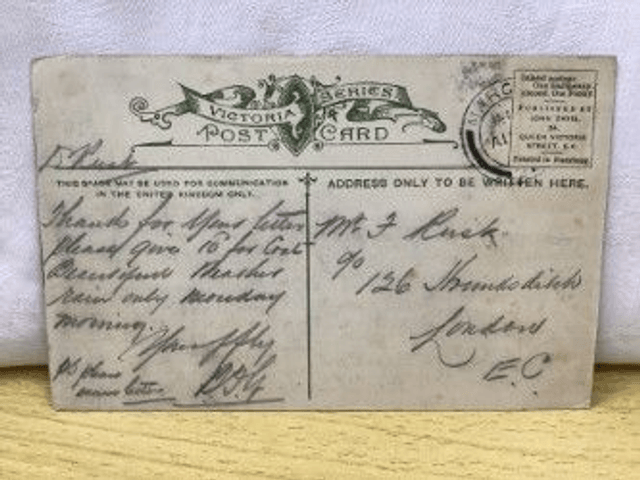 VICTORIA SERIES
POST CARD
MARG
Inland postage
One halfpenny
PUBLISHED BY
JOHN
QUEEN VICTORIA
STREET, E.C.
Printed in
D. Rusk
THIS SPACE MAY BE USED FOR COMMUNICATION
IN THE UNITED KINGDOM ONLY.
ADDRESS ONLY TO BE WRITTEN HERE.
Thanks for your letter
please give 15 for Coat
Beautiful Weather
rain only Monday
morning.
Yours ffly
PS please
letter
Mr. F Rusk
c/o
126 Houndsditch
London
E.C.